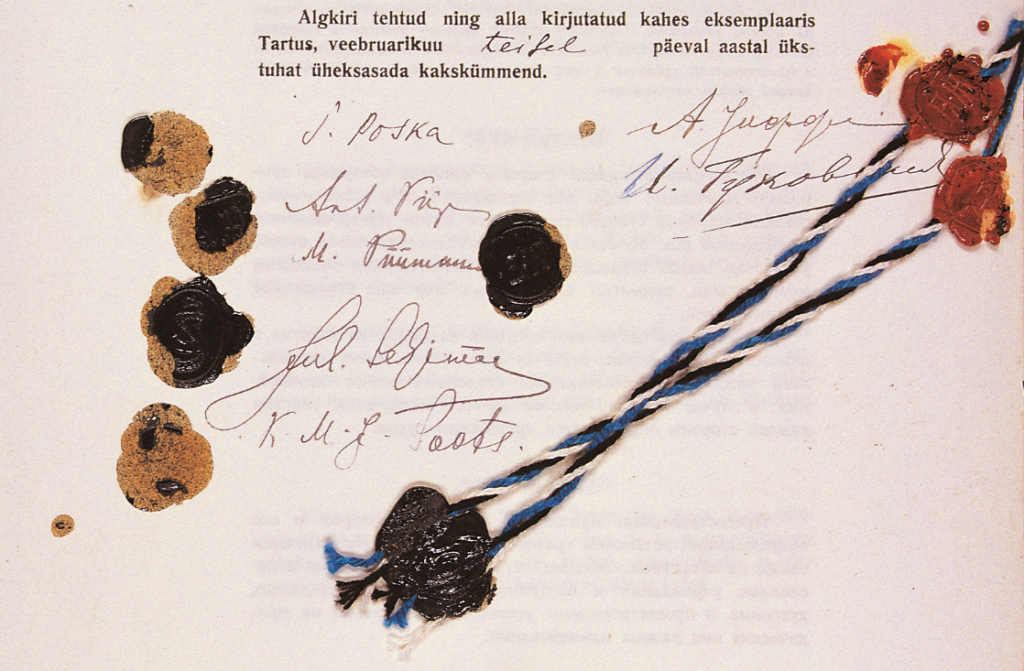 Algkiri tehtud ning alla kirjutatud kahes eksemplaaris
Tartus, veebruarikuu teisel päeval aastal üks-
tuhat üheksasada kakskümmend.
J. Poska
Ant. Piip
M. Püümann
Jul. Seljamaa
K M-J- Soots.
А. Иоффе
И. Гуковский